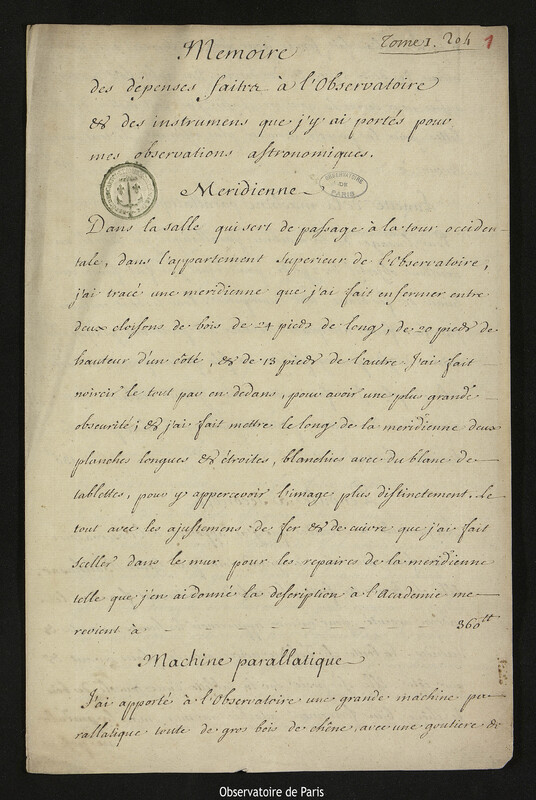 Tome I. 204 1
Memoire
des dépenses faites à l'Observatoire
& des instrumens que j'y ai portés pour
mes observations astronomiques.
OBSERVATOIRE
DE
PARIS
Meridienne
Dans la salle qui sert de passage à la tour occiden-
tale, dans l'appartement superieur de l'Observatoire,
j'ai tracé une meridienne que j'ai fait enfermer entre
deux cloisons de bois de 24 pieds de long, de 20 pieds de
hauteur d'un côté, & de 13 pieds de l'autre. J'ai fait
noircir le tout par en dedans, pour avoir une plus grande
obscurité; & j'ai fait mettre le long de la meridienne deux
planches longues & étroites, blanchies avec du blanc de
tablettes, pour y appercevoir l'image plus distinctement. Le
tout avec les ajustemens de fer & de cuivre que j'ai fait
sceller dans le mur pour les repaires de la meridienne
telle que j'en ai donné la description à l'Academie me
revient à - - - - - 360 tt
Machine parallatique
J'ai apporté à l'Observatoire une grande machine pa-
rallatique toute de gros bois de chêne, avec une goutiere &
Observatoire de Paris